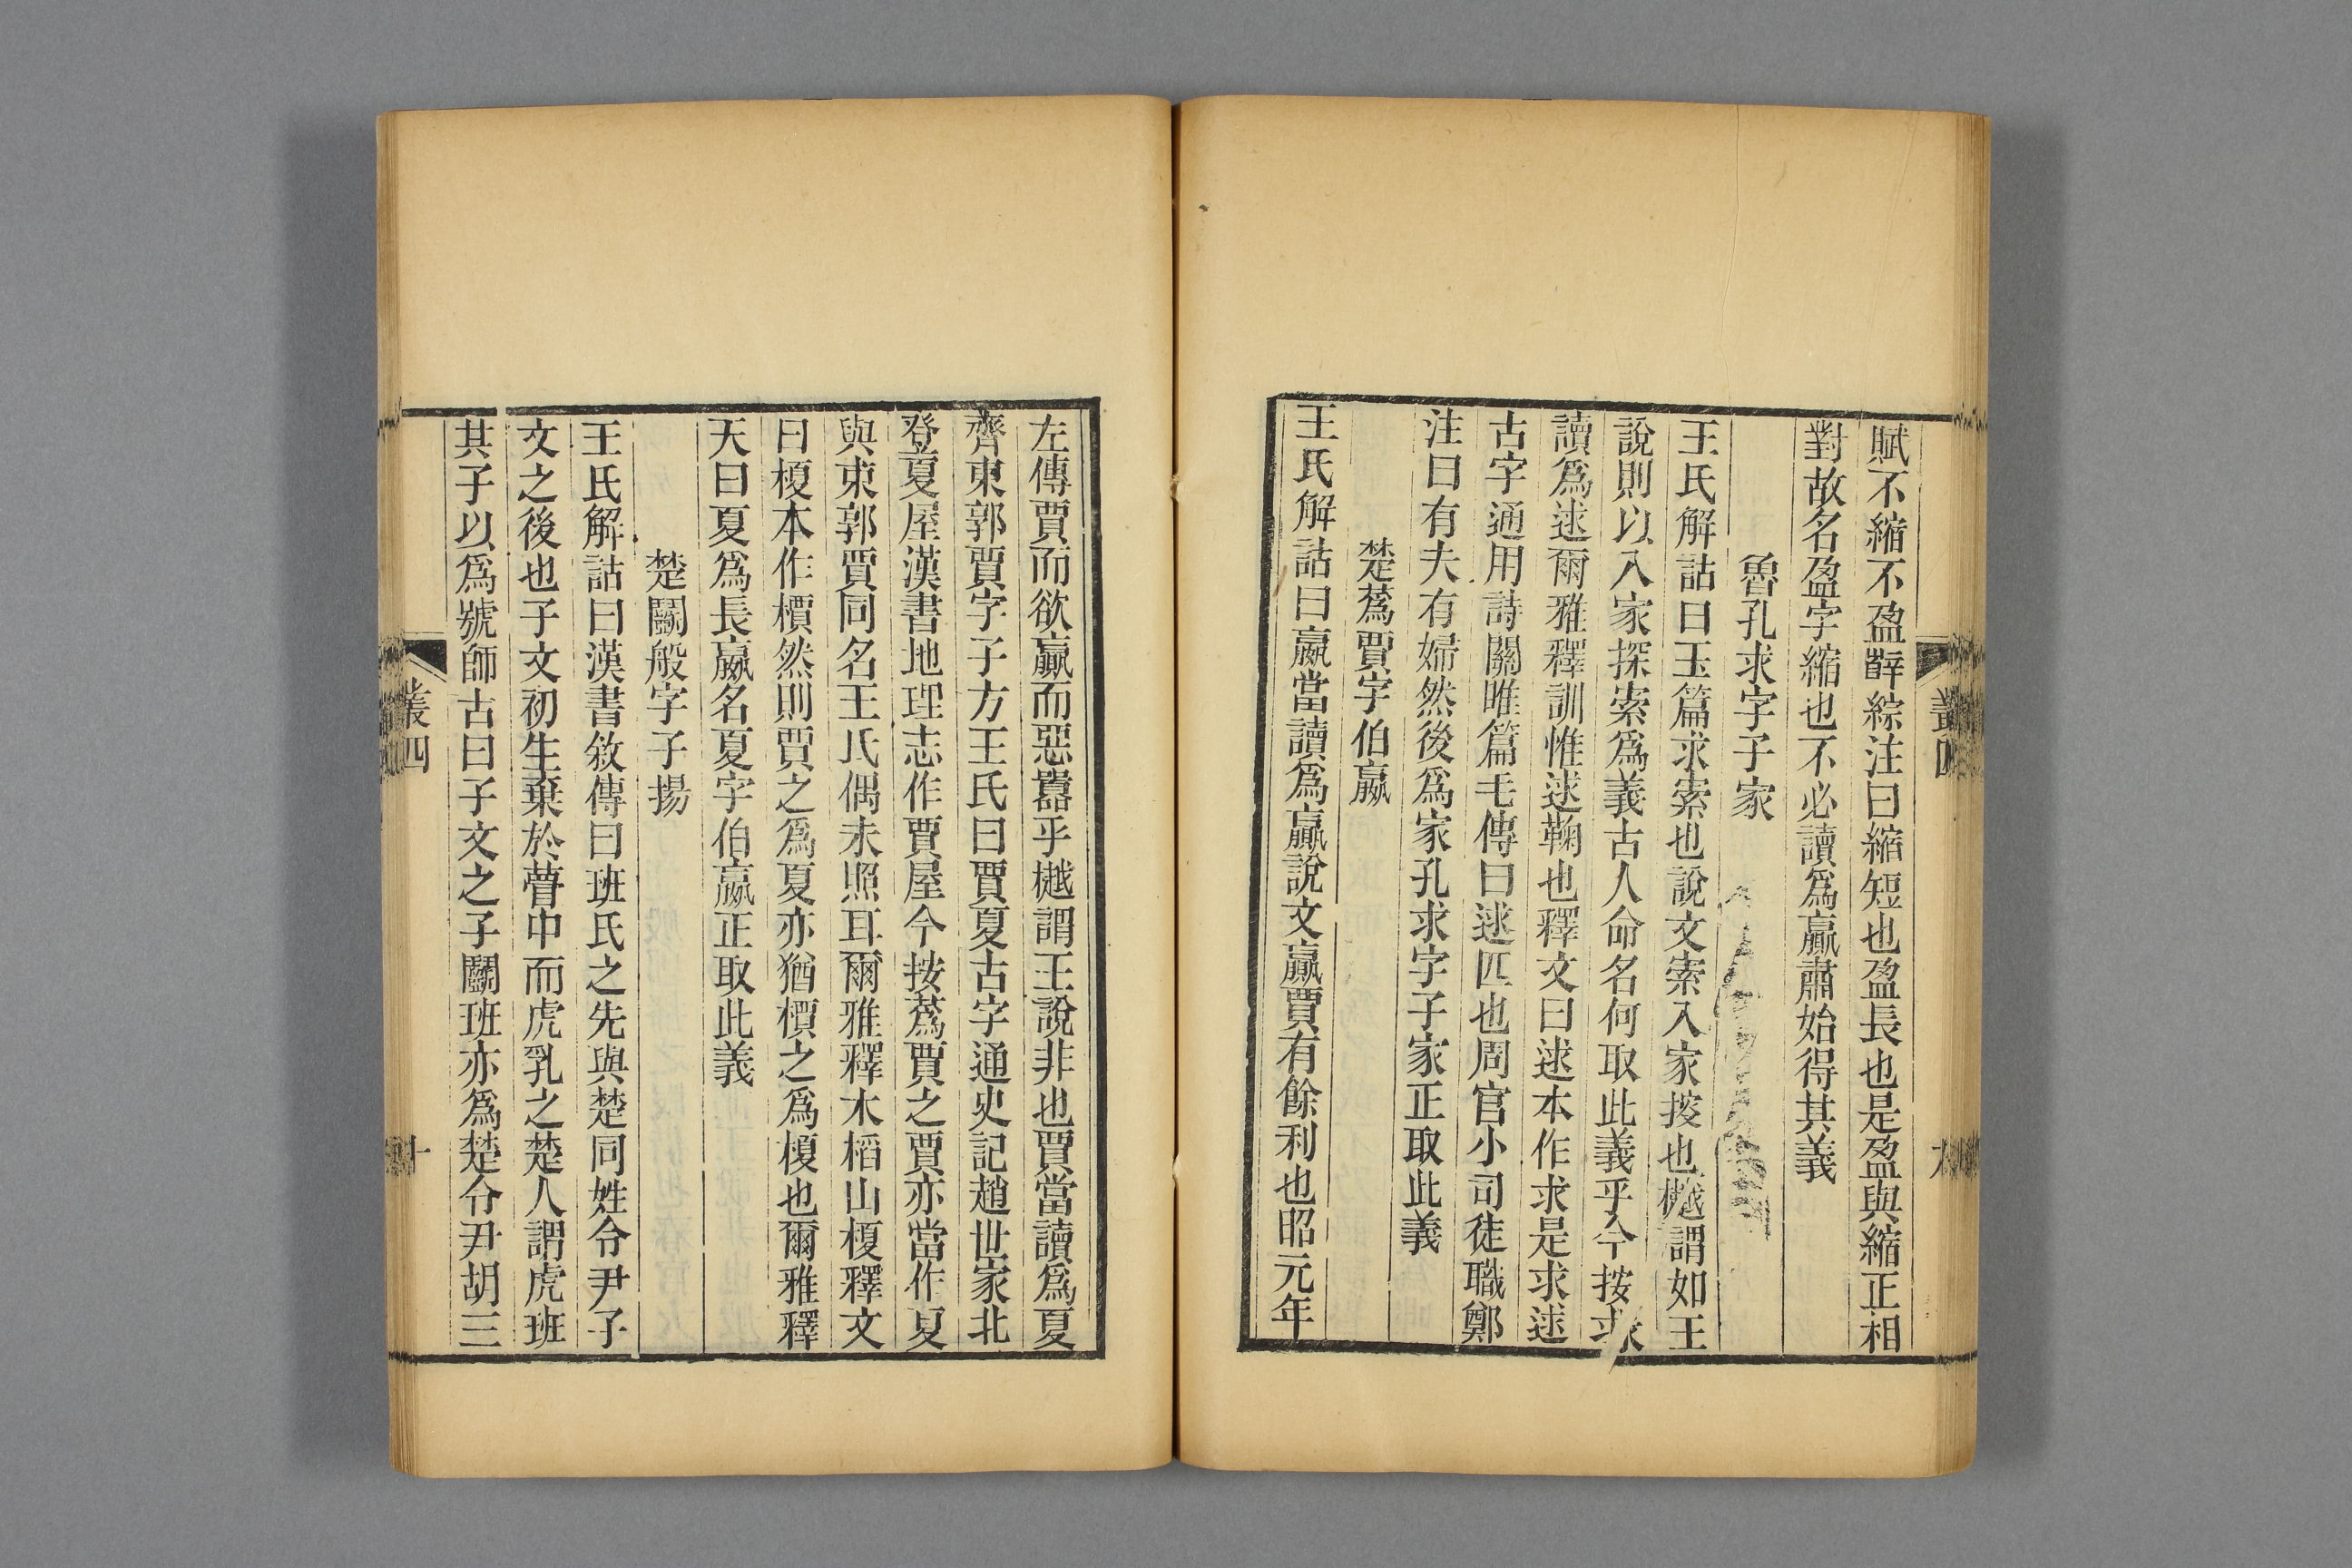 賦不縮不盈辥綜注曰縮短也盈長也是盈與縮正相
對故名盈字縮也不必讀爲贏肅始得其義
魯孔求字子家
王氏解詁曰玉篇求索也說文索入家搜也樾謂如王
說則以入家探索爲義古人命名何取此義乎今按求
讀爲逑爾雅釋訓惟逑鞠也釋文曰逑本作求是求逑
古字通用詩關雎篇毛傳曰逑匹也周官小司徒職鄭
注曰有夫有婦然後爲家孔求字子家正取此義
楚蔿賈字伯嬴
王氏解詁曰嬴當讀爲贏說文贏賈有餘利也昭元年
左傳賈而欲贏而惡囂乎樾謂王說非也賈當讀爲夏
齊東郭賈字子方王氏曰賈夏古字通史記趙世家北
登夏屋漢書地理志作賈屋今按蔿賈之賈亦當作夏
與東郭賈同名王氏偶未照耳爾雅釋木槄山榎釋文
曰榎本作檟然則賈之爲夏亦猶檟之爲榎也爾雅釋
天曰夏爲長嬴名夏字伯嬴正取此義
楚鬬般字子揚
王氏解詁曰漢書敘傳曰班氏之先與楚同姓令尹子
文之後也子文初生棄於瞢中而虎乳之楚人謂虎班
其子以爲號師古曰子文之子鬬班亦爲楚令尹胡三
叢四
十